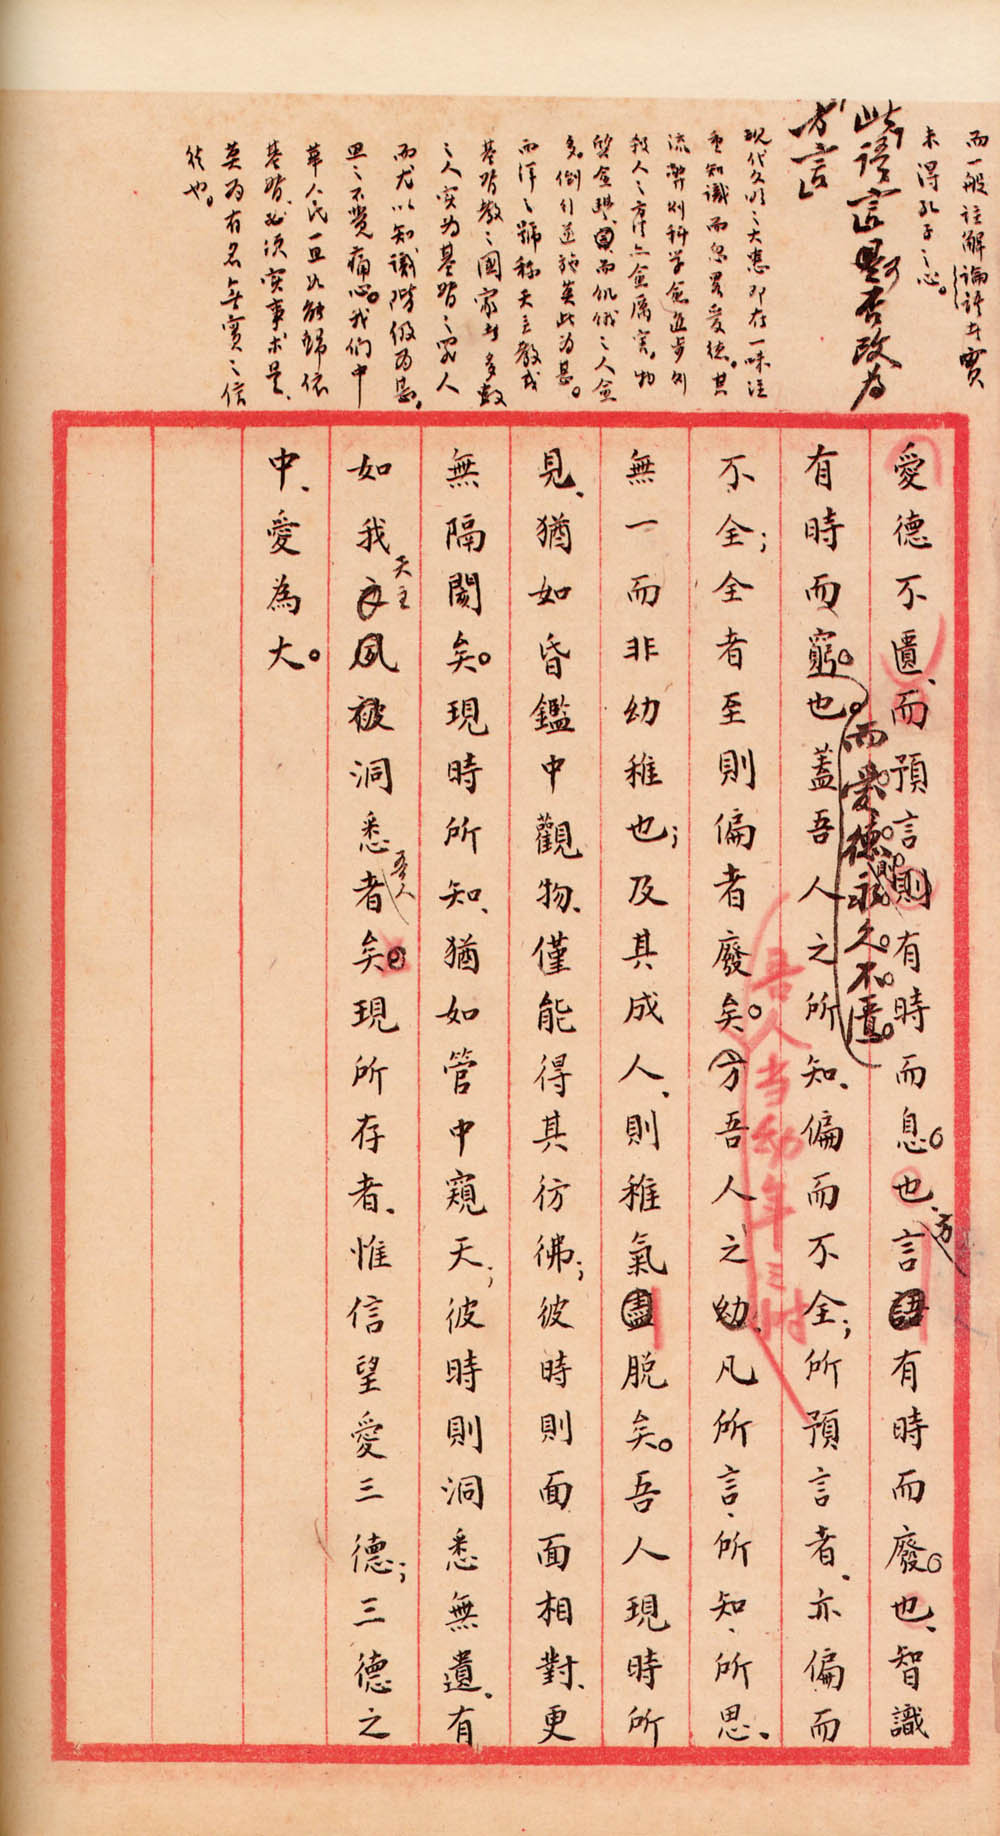 而一般註解論語者實
未得孔子之心。
此語言是否改为
方言
現代文明之大患即在一味注
重知識而忽畧愛德。其
流弊則科学愈進步則
殺人之方法亦愈厲害。物
質愈豐富而飢餓之人愈
多。倒行逆施莫此为甚。
而洋之號称天主教或
基督教之國家者多數
之人实为基督之罪人
而尤以知識階級为甚。
思之不覺痛心。我们中
華人民一旦如能歸依
基督、必須实事求是、
莫为有名無實之信
徒也。
愛德不匱、而預言則有時而息。也、言語有時而廢。也、智識
方
而愛德則永久不匱。
有時而窮。也。蓋吾人之所知、偏而不全；所預言者、亦偏而
不全；全者至則偏者廢矣。方吾人之幼、凡所言、所知、所思、
吾人当幼年之時
無一而非幼稚也；及其成人、則稚氣盡脫矣。吾人現時所
見、猶如昏鑑中觀物、僅能得其彷彿；彼時則面面相對、更
無隔閡矣。現時所知、猶如管中窺天；彼時則洞悉無遺、有
如我主夙被洞悉者矣。現所存者、惟信望愛三德；三德之
天主
吾人
中、愛為大。